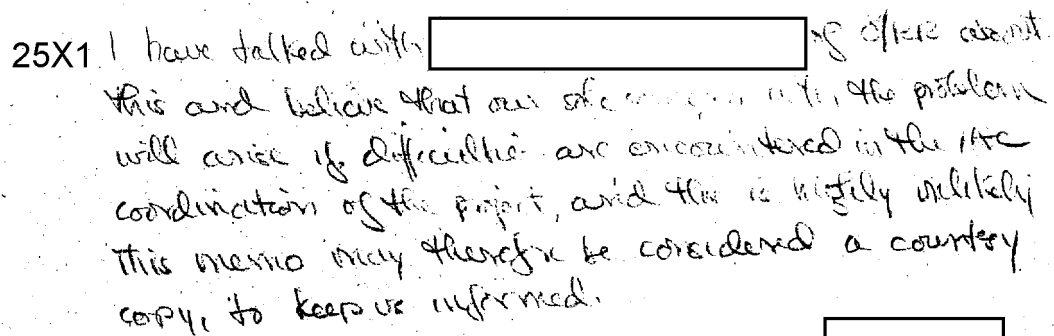 25X1 I have talked with of OSI about
this and believe that our the problem
will arise if difficulties are encountered in the IAC
coordination of the project, and this is highly unlikely
This memo may therefore be considered a courtesy
copy, to keep us informed.